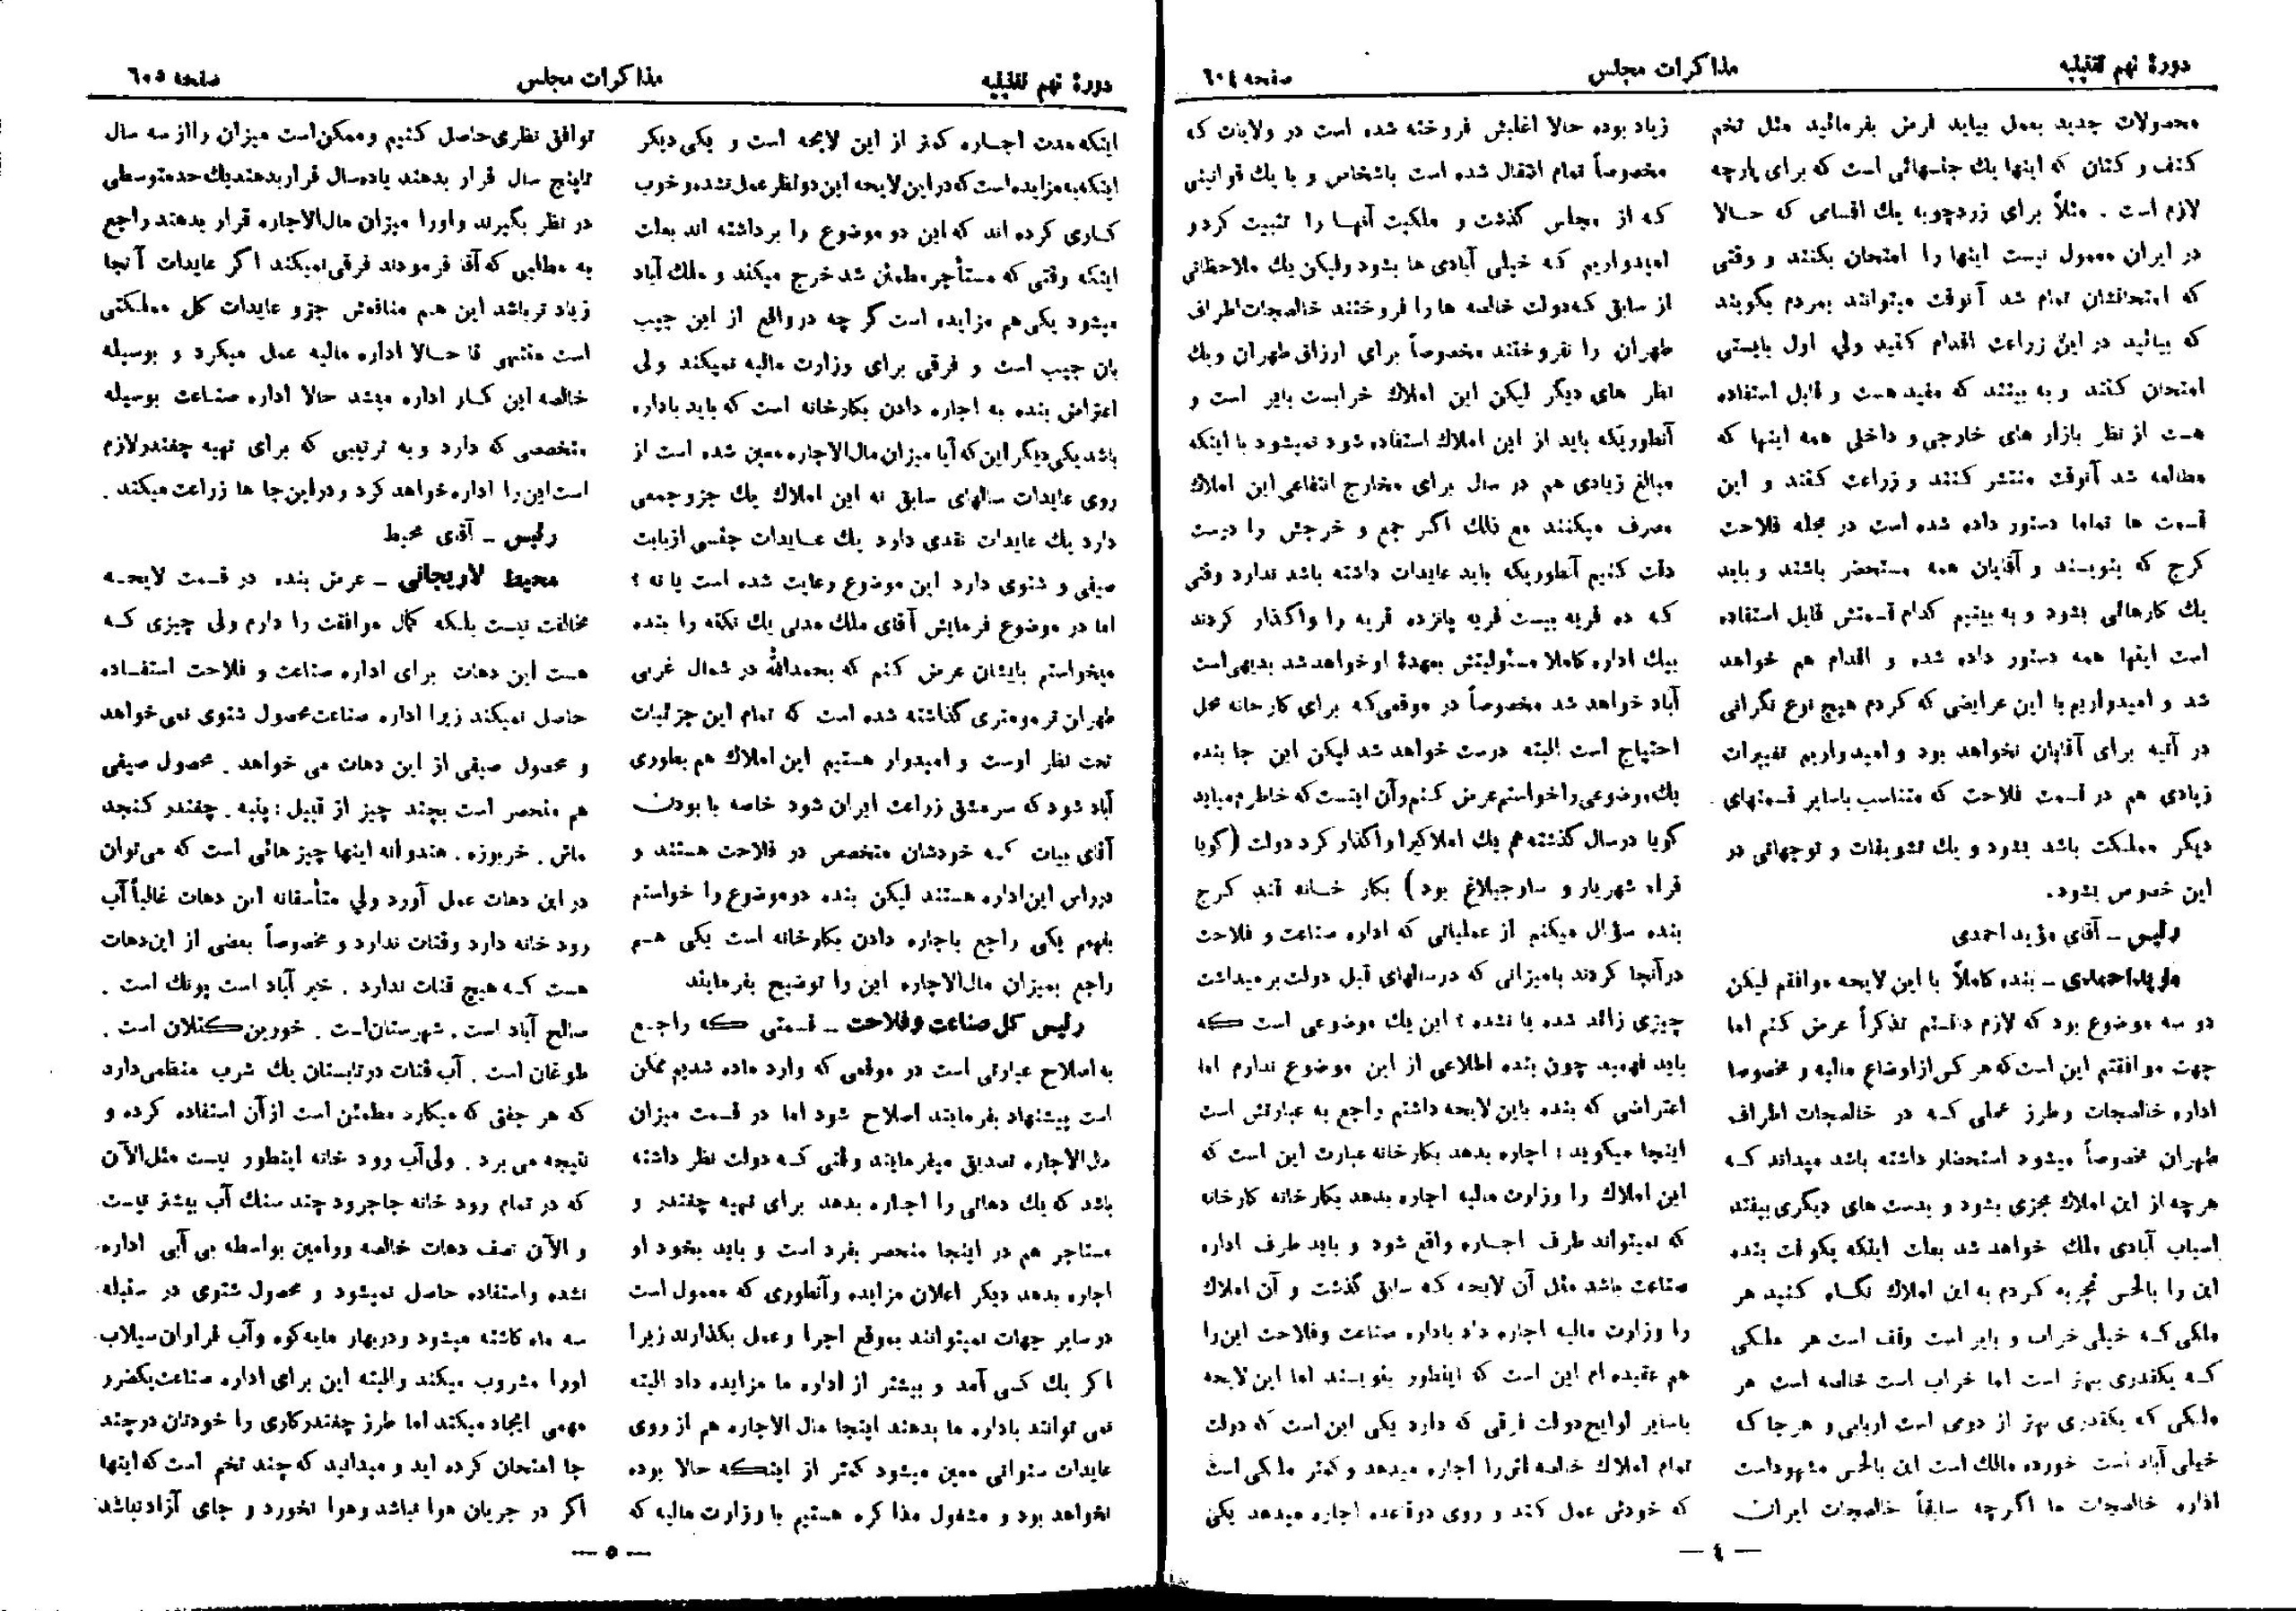 دورهٔ نهم تقنینیه
مذاکرات مجلس
صفحه ٦٠٤
محصولات جدید بعمل بیاید فرض بفرمائید مثل تخم
کنف و کتان که اینها یك جنسهائی است که برای پارچه
لازم است . مثلاً برای زردچوبه یك اقسامی که حالا
در ایران معمول نیست اینها را امتحان بکنند و وقتی
که امتحانشان تمام شد آنوقت میتوانند بمردم بگویند
که بیائید در این زراعت اقدام کنید ولی اول بایستی
امتحان کنند و به بینند که مفید هست و قابل استفاده
هست از نظر بازار های خارجی و داخلی همه اینها که
مطالعه شد آنوقت منتشر کنند و زراعت کنند و این
قسمت ها تماما دستور داده شده است در مجله فلاحت
کرج که بنویسند و آقایان همه مستحضر باشند و باید
یك کارهائی بشود و به بینیم کدام قسمتش قابل استفاده
است اینها همه دستور داده شده و اقدام هم خواهد
شد و امیدواریم با این عرایضی که کردم هیچ نوع نگرانی
در آتیه برای آقایان نخواهد بود و امیدواریم تغییرات
زیادی هم در قسمت فلاحت که متناسب باسایر قسمتهای
دیگر مملکت باشد بشود و یك تشویقات و توجهاتی در
این خصوص بشود.
رئیس ــ آقای مؤید احمدی
مؤید احمدی ــ بنده کاملاً با این لایحه موافقم لیکن
دو سه موضوع بود که لازم دانستم تذکراً عرض کنم اما
جهت موافقتم این است که هر کس از اوضاع مالیه و مخصوصا
اداره خالصجات وطرز عملی که در خالصجات اطراف
طهران مخصوصاً میشود استحضار داشته باشد میداند که
هرچه از این املاك مجزی بشود و بدست های دیگری بیفتد
اسباب آبادی ملك خواهد شد بعلت اینکه یکوقت بنده
این را بالحس تجربه کردم به این املاك نگاه کنید هر
ملکی که خیلی خراب و بایر است وقف است هر ملکی
که یکقدری بهتر است اما خراب است خالصه است هر
ملکی که یکقدری بهتر از دومی است اربابی و هر جا که
خیلی آباد است خورده مالك است این بالحس مشهوداست
اداره خالصجات ما اگرچه سابقاً خالصجات ایران
زیاد بوده حالا اغلبش فروخته شده است در ولایات که
مخصوصاً تمام انتقال شده است باشخاص و با یك قوانینی
که از مجلس گذشت و ملکیت آنها را تثبیت کرد و
امیدواریم که خیلی آبادی ها بشود ولیکن یك ملاحظاتی
از سابق که دولت خالصه ها را فروختند خالصجات اطراف
طهران را نفروختند مخصوصاً برای ارزاق طهران و یك
نظر های دیگر لیکن این املاك خرابست بایر است و
آنطوریکه باید از این املاك استفاده شود نمیشود با اینکه
مبالغ زیادی هم در سال برای مخارج انتفاعی این املاك
مصرف میکنند مع ذلك اگر جمع و خرجش را درست
دقت کنیم آنطوریکه باید عایدات داشته باشد ندارد وقتی
که ده قریه بیست قریه پانزده قریه را واگذار کردند
بیك اداره کاملا مسئولیتش بعهدهٔ او خواهد شد بدیهی است
آباد خواهد شد مخصوصاً در موقعی که برای کارخانه محل
احتیاج است البته درست خواهد شد لیکن این جا بنده
یك موضوعی را خواستم عرض کنم و آن اینست که خاطرم میاید
گویا درسال گذشته هم یك املاکیرا واگذار کرد دولت (گویا
قراء شهریار و ساوجبلاغ بود) بکار خانه قند کرج
بنده سؤال میکنم از عملیاتی که اداره صناعت و فلاحت
در آنجا کردند بامیزانی که در سالهای قبل دولت برمیداشت
چیزی زائد شده یا نشده ؟ این یك موضوعی است که
باید فهمید چون بنده اطلاعی از این موضوع ندارم اما
اعتراضی که بنده باین لایحه داشتم راجع به عبارتش است
اینجا میگوید : اجاره بدهد بکارخانه عبارت این است که
این املاك را وزارت مالیه اجاره بدهد بکارخانه کارخانه
که نمیتواند طرف اجاره واقع شود و باید طرف اداره
صناعت باشد مثل آن لایحه که سابق گذشت و آن املاك
را وزارت مالیه اجاره داد باداره صناعت وفلاحت این را
هم عقیده ام این است که اینطور بنویسند اما این لایحه
باسایر لوایح دولت فرقی که دارد یکی این است که دولت
تمام املاك خالصه اش را اجاره میدهد و کمتر ملکی است
که خودش عمل کند و روی دوقاعده اجاره میدهد یکی
— ٤ —
دورهٔ نهم تقنینیه
مذاکرات مجلس
صفحه ٦٠٥
اینکه مدت اجاره کمتر از این لایحه است و یکی دیگر
اینکه به مزایده است که در این لایحه این دو نظر عمل نشده و خوب
کاری کرده اند که این دو موضوع را برداشته اند بعلت
اینکه وقتی که مستأجر مطمئن شد خرج میکند و ملك آباد
میشود یکی هم مزایده است گر چه در واقع از این جیب
بان جیب است و فرقی برای وزارت مالیه نمیکند ولی
اعتراض بنده به اجاره دادن بکارخانه است که باید باداره
باشد یکی دیگر این که آیا میزان مال الاجاره معین شده است از
روی عایدات سالهای سابق نه این املاك یك جزو جمعی
دارد یك عایدات نقدی دارد یك عایدات جنسی ازبابت
صیفی و شتوی دارد این موضوع رعایت شده است یا نه ؟
اما در موضوع فرمایش آقای ملك مدنی یك نکته را بنده
میخواستم بایشان عرض کنم که بحمدالله در شمال غربی
طهران ترمومتری گذاشته شده است که تمام این جزئیات
تحت نظر اوست و امیدوار هستیم این املاك هم بطوری
آباد شود که سرمشق زراعت ایران شود خاصه با بودن
آقای بیات که خودشان متخصص در فلاحت هستند و
درراس این اداره هستند لیکن بنده دو موضوع را خواستم
بفهمم یکی راجع باجاره دادن بکارخانه است یکی هم
راجع بمیزان مال الاجاره این را توضیح بفرمایند
رئیس کل صناعت وفلاحت ــ قسمتی که راجع
به اصلاح عبارتی است در موقعی که وارد ماده شدیم ممکن
است پیشنهاد بفرمایند اصلاح شود اما در قسمت میزان
مال الاجاره تصدیق میفرمایند وقتی که دولت نظر داشته
باشد که یك دهاتی را اجاره بدهد برای تهیه چغندر و
مستاجر هم در اینجا منحصر بفرد است و باید بخود او
اجاره بدهد دیگر اعلان مزایده وآنطوری که معمول است
در سایر جهات نمیتوانند بموقع اجرا و عمل بگذارند زیرا
اگر یك کسی آمد و بیشتر از اداره ما مزایده داد البته
نمی توانند باداره ما بدهند اینجا مال الاجاره هم از روی
عایدات سنواتی معین میشود کمتر از اینکه حالا بوده
نخواهد بود و مشغول مذاکره هستیم با وزارت مالیه که
توافق نظری حاصل کنیم وممکن است میزان رااز سه سال
تاپنج سال قرار بدهند یاده سال قرار بدهند یك حدمتوسطی
در نظر بگیرند واورا میزان مال الاجاره قرار بدهند راجع
به مطلبی که آقا فرمودند فرقی نمیکند اگر عایدات آنجا
زیاد ترباشد این هم منافعش جزو عایدات کل مملکتی
است منتهی تا حالا اداره مالیه عمل میکرد و بوسیله
خالصه این کار اداره میشد حالا اداره صناعت بوسیله
متخصصی که دارد و به ترتیبی که برای تهیه چغندر لازم
است این را اداره خواهد کرد و در این جا ها زراعت میکند .
رئیس ــ آقای محیط
محیط لاریجانی ــ عرض بنده در قسمت لایحه
مخالفت نیست بلکه کمال موافقت را دارم ولی چیزی که
هست این دهات برای اداره صناعت و فلاحت استفاده
حاصل نمیکند زیرا اداره صناعت محصول شتوی نمی خواهد
و محصول صیفی از این دهات می خواهد . محصول صیفی
هم منحصر است بچند چیز از قبیل : پنبه . چغندر کنجد
ماش . خربوزه . هندوانه اینها چیز هائی است که می توان
در این دهات عمل آورد ولی متأسفانه این دهات غالباً آب
رود خانه دارد وقنات ندارد و مخصوصاً بعضی از این دهات
هست که هیچ قنات ندارد . خیر آباد است پونك است .
صالح آباد است . شهرستان است . خورین کتلان است .
طوغان است . آب قنات درتابستان یك شرب منظمی دارد
که هر جفتی که میکارد مطمئن است از آن استفاده کرده و
نتیجه می برد . ولی آب رود خانه اینطور نیست مثل الآن
که در تمام رود خانه جاجرود چند سنك آب بیشتر نیست
و الآن نصف دهات خالصه وورامین بواسطه بی آبی اداره
نشده واستفاده حاصل نمیشود و محصول شتوی در سنبله
سه ماه کاشته میشود ودربهار مایه کوه وآب فراوان سیلاب
اورا مشروب میکند والبته این برای اداره صناعت یکضرر
مهمی ایجاد میکند اما طرز چغندرکاری را خودتان درچند
جا امتحان کرده اید و میدانید که چند تخم است که اینها
اگر در جریان هوا نباشد وهوا نخورد و جای آزاد نباشد
— ٥ —